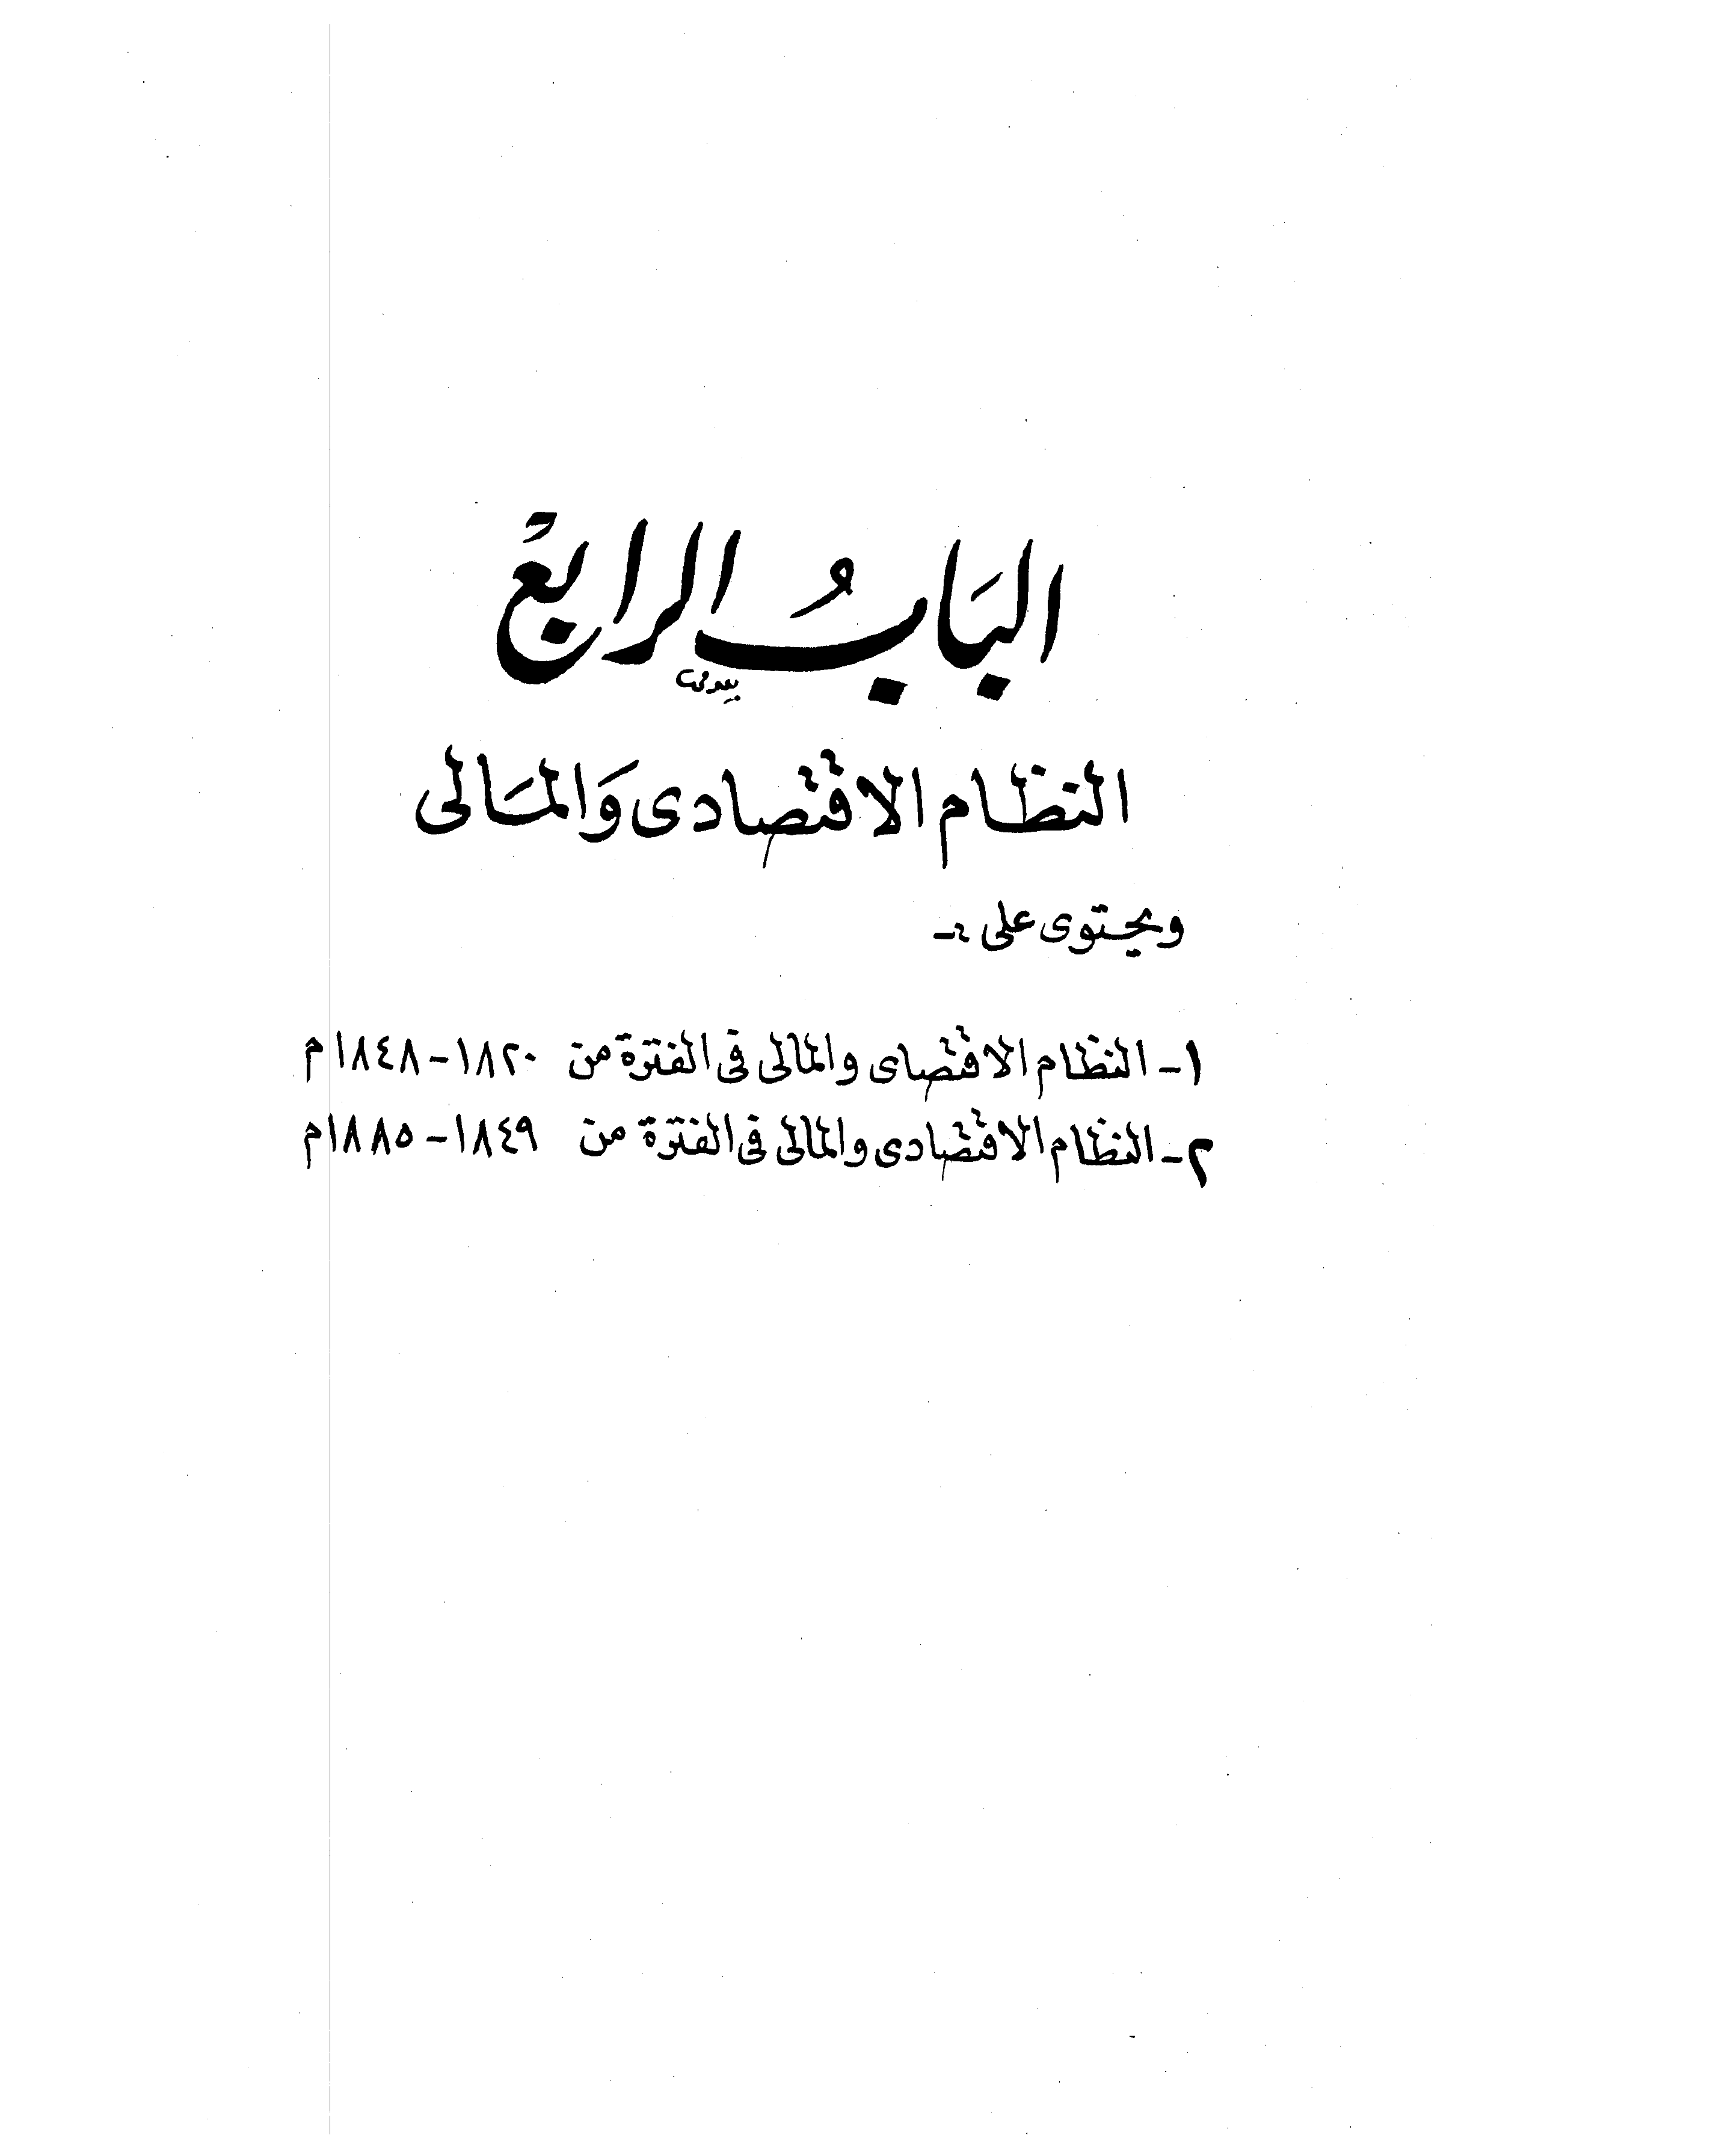 البَابُ الرابعُ
النظام الاقتصادى وَالمَالى
ويحتوى على :-
١- النظام الاقتصاى والمالى فى الفترة من ١٨٢٠-١٨٤٨م
٢- النظام الاقتصادى والمالى فى الفترة من ١٨٤٩-١٨٨٥م